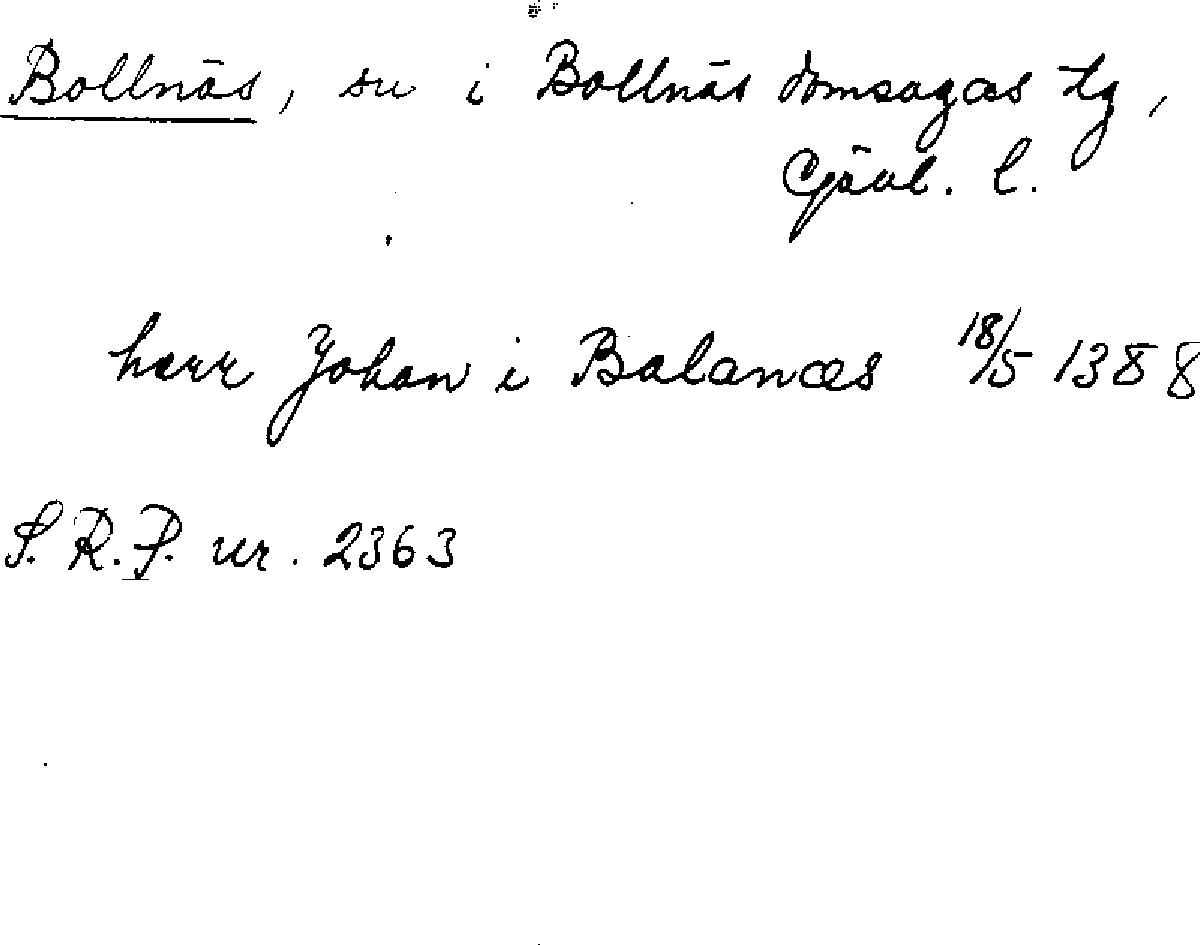 Bollnäs, sn i Bollnäs domsagas tg,
Gävl. l.
herr Johan i Balanæs 18/5 1388
S.R.P. nr. 2363